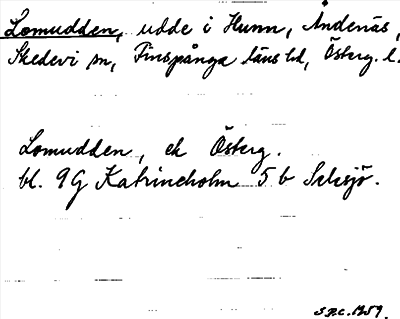 Lomudden, udde i Hunn, Åndenäs,
Skedevi sn, Finspånga läns hd, Österg. l.
Lomudden, ek Österg.
bl. 9G Katrineholm 5 b
S.P.C. 1959.